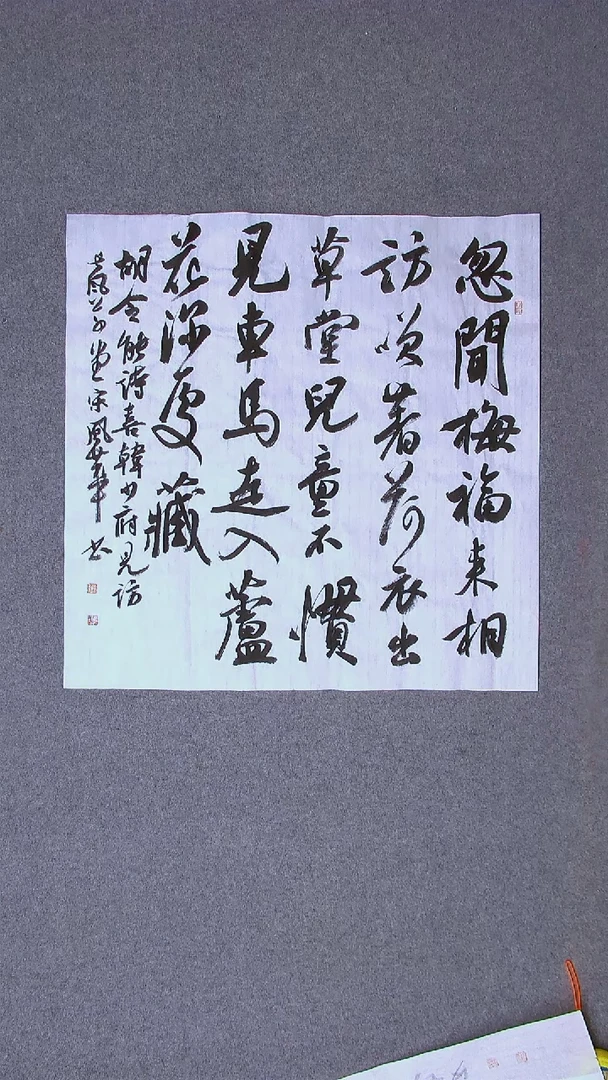 忽聞梅福来相
訪咲著荷衣出
草堂兒童不慣
見車馬走入蘆
花深處藏
胡令能詩喜韓少府見訪
宋風華书